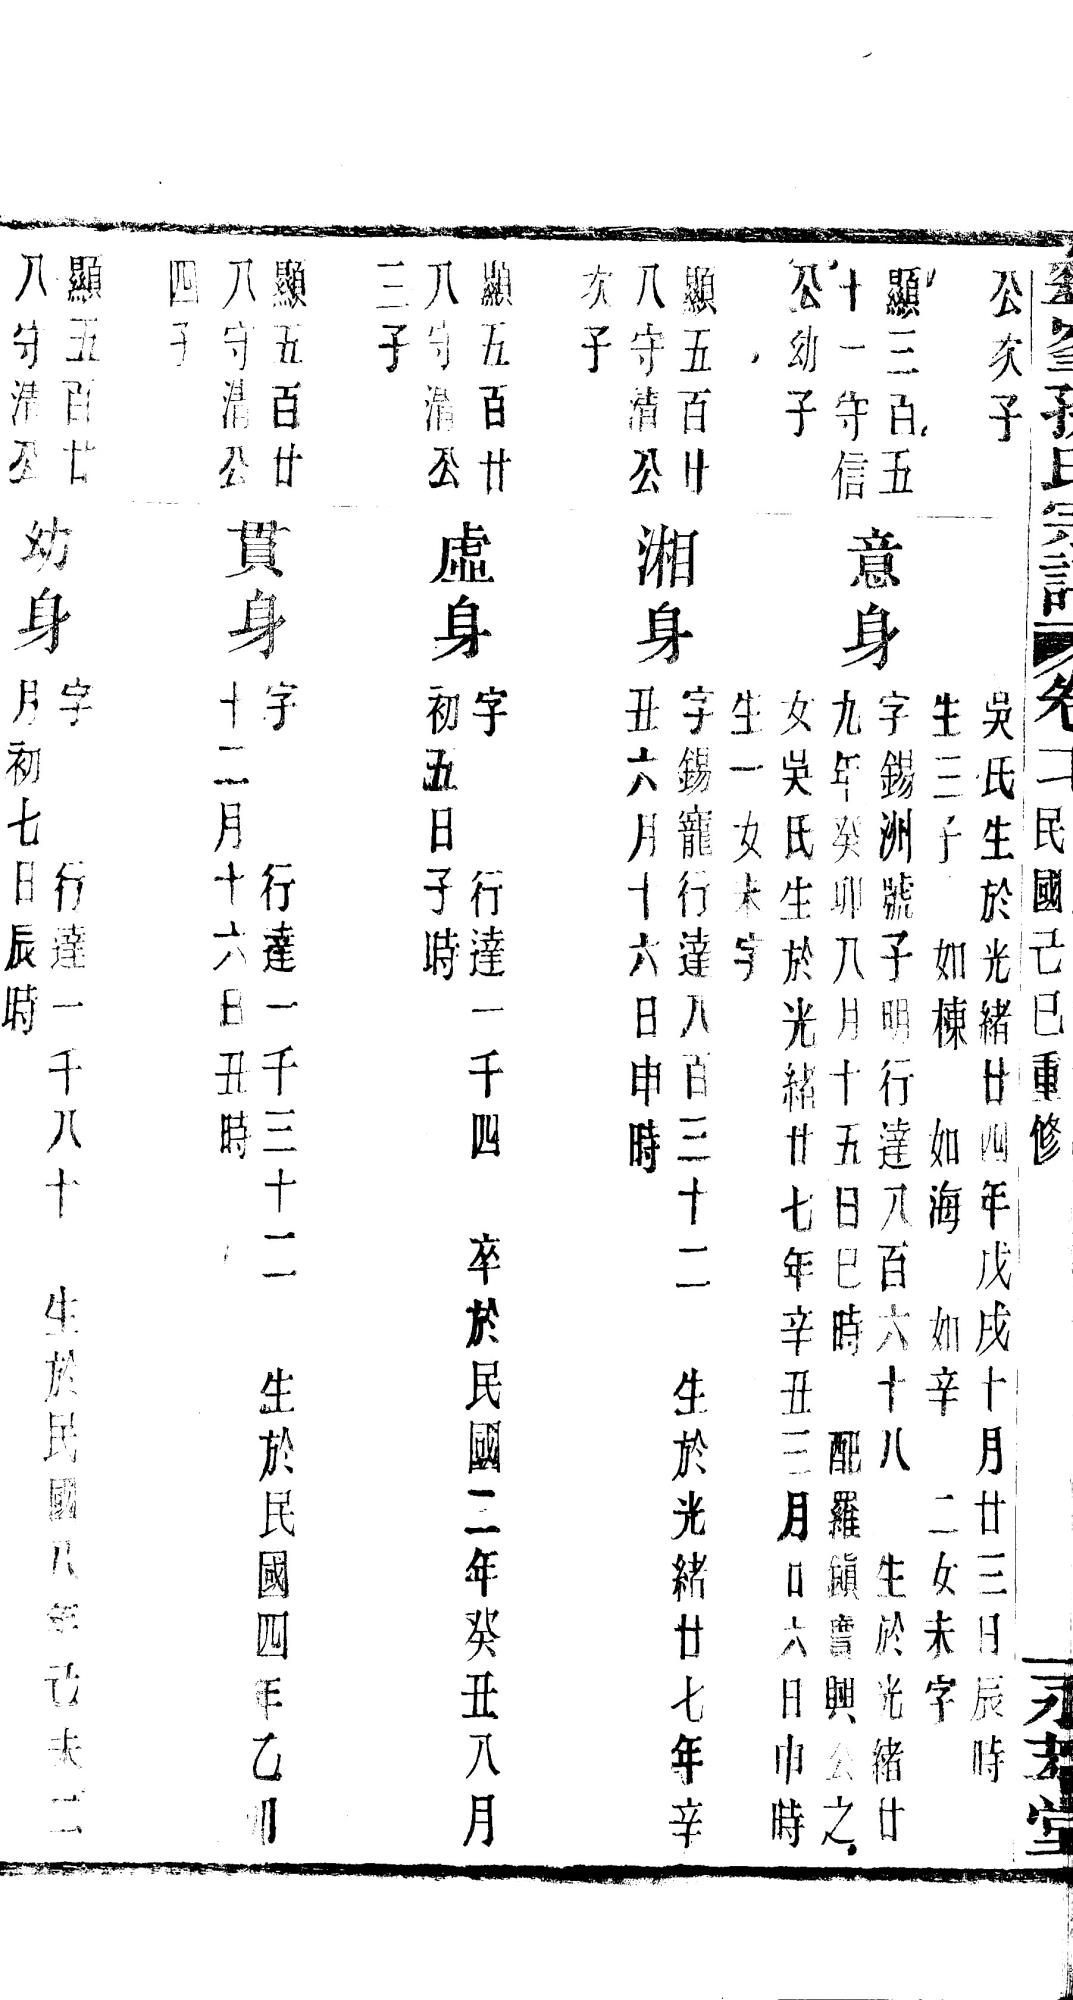 孫氏宗譜 卷 民國己巳重修 堂
公次子
吳氏生於光緒廿四年戊戌十月廿三日辰時
生三子 如棟 如海 如辛 二女未字
顯三百五
十一守信
公幼子
意身
字錫洲號子明行達八百六十八 生於光緒廿
九年癸卯八月十五日巳時 配羅鎮 興公之
女吳氏生於光緒廿七年辛丑三月廿六日巾時
生一女未字
顯五百廿
八守清公
次子
湘身
字錫寵行達八百三十二 生於光緒廿七年辛
丑六月十六日申時
顯五百廿
八守清公
三子
虛身
字 行達一千四 卒於民國二年癸丑八月
初五日子時
顯五百廿
八守清公
四子
貫身
字 行達一千三十二 生於民國四年乙卯
十二月十六日丑時
顯五百廿
八守清公
幼身
字 行達一千八十 生於民國八年己未二
月初七日辰時